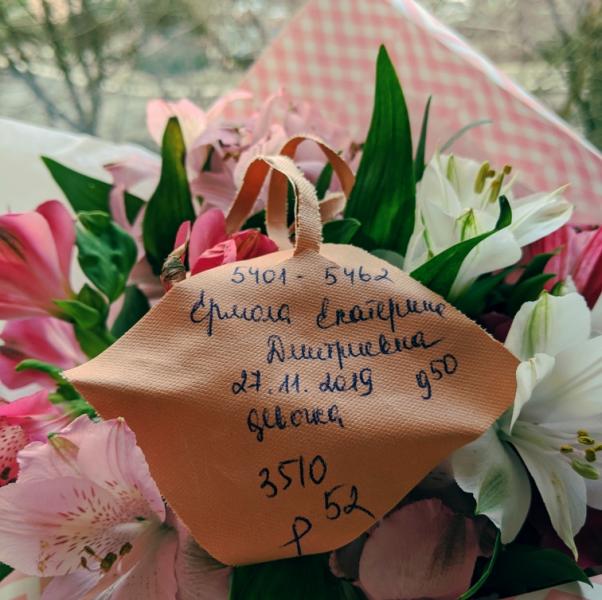 5401 - 5462
Ермола Екатерина
Дмитриевна
27.11.2019 9⁵⁰
девочка
3510
р 52